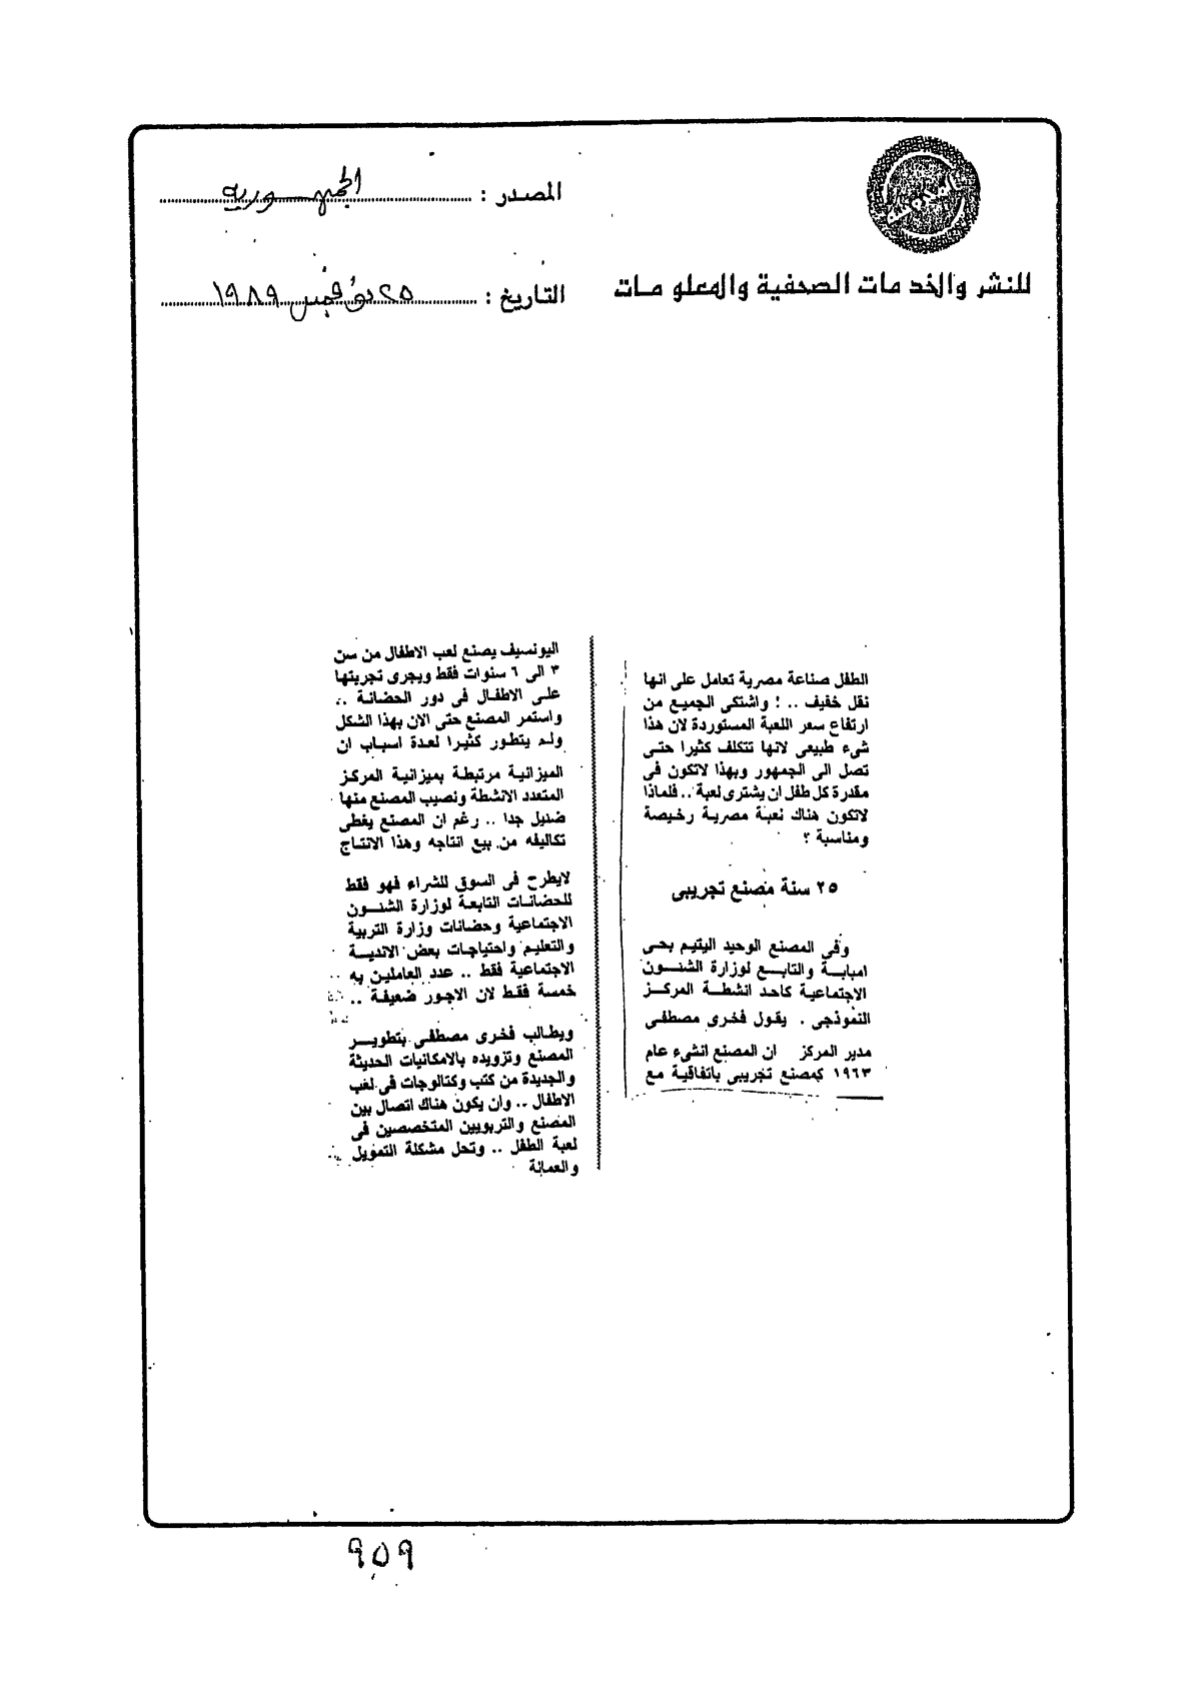 المصدر : الجمهورية
للنشر والخدمات الصحفية والمعلومات
التاريخ : ٢٥ نوفمبر ١٩٨٩
الطفل صناعة مصرية تعامل على انها
نقل خفيف .. ! واشتكى الجميع من
ارتفاع سعر اللعبة المستوردة لان هذا
شىء طبيعى لانها تتكلف كثيرا حتى
تصل الى الجمهور وبهذا لاتكون فى
مقدرة كل طفل ان يشترى لعبة .. فلماذا
لاتكون هناك لعبة مصرية رخيصة
ومناسبة ؟
٢٥ سنة مصنع تجريبى
وفى المصنع الوحيد اليتيم بحى
امبابة والتابع لوزارة الشئون
الاجتماعية كاحد انشطة المركز
النموذجى . يقول فخرى مصطفى
مدير المركز ان المصنع انشىء عام
١٩٦٣ كمصنع تجريبى باتفاقية مع
اليونسيف يصنع لعب الاطفال من سن
٣ الى ٦ سنوات فقط ويجرى تجربتها
على الاطفال فى دور الحضانة ..
واستمر المصنع حتى الان بهذا الشكل
ولم يتطور كثيرا لعدة اسباب ان
الميزانية مرتبطة بميزانية المركز
المتعدد الانشطة ونصيب المصنع منها
ضئيل جدا .. رغم ان المصنع يغطى
تكاليفه من بيع انتاجه وهذا الانتاج
لايطرح فى السوق للشراء فهو فقط
للحضانات التابعة لوزارة الشئون
الاجتماعية وحضانات وزارة التربية
والتعليم واحتياجات بعض الاندية
الاجتماعية فقط .. عدد العاملين به ..
خمسة فقط لان الاجور ضعيفة ..
ويطالب فخرى مصطفى بتطوير
المصنع وتزويده بالامكانيات الحديثة
والجديدة من كتب وكتالوجات فى لعب
الاطفال .. وان يكون هناك اتصال بين
المصنع والتربويين المتخصصين فى
لعبة الطفل .. وتحل مشكلة التمويل
والعمالة
٩٥٩